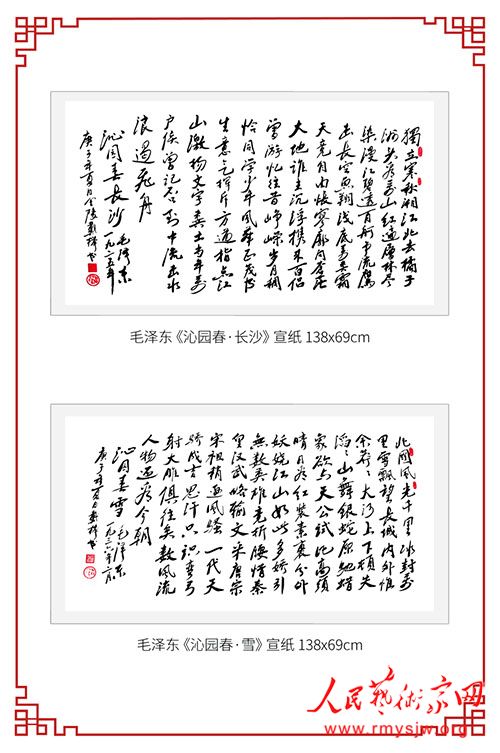 獨立寒秋湘江北去橘子
洲头看万山红遍层林尽
染漫江碧透百舸争流鹰
击长空鱼翔浅底万类霜
天竞自由怅寥廓问苍茫
大地谁主沉浮携来百侣
曾游忆往昔峥嵘岁月稠
恰同学少年风华正茂书
生意气挥斥方遒指点江
山激扬文字粪土当年万
户侯曾记否到中流击水
浪遏飞舟
沁园春长沙 毛泽东 一九二五年
庚子年夏月金陵
毛泽东《沁园春·长沙》宣纸 138x69cm
北國风光千里冰封万
里雪飘望长城内外惟
余莽莽大河上下顿失
滔滔山舞银蛇原驰蜡
象欲与天公试比高须
晴日看红装素裹分外
妖娆江山如此多娇引
無数英雄竞折腰惜秦
皇汉武略输文采唐宗
宋祖稍逊风骚一代天
骄成吉思汗只识弯弓
射大雕俱往矣数风流
人物还看今朝
沁园春雪 毛泽东 一九三六年二月
庚子年夏月
毛泽东《沁园春·雪》宣纸 138x69cm
人民藝術家网
www.rmysjw.org